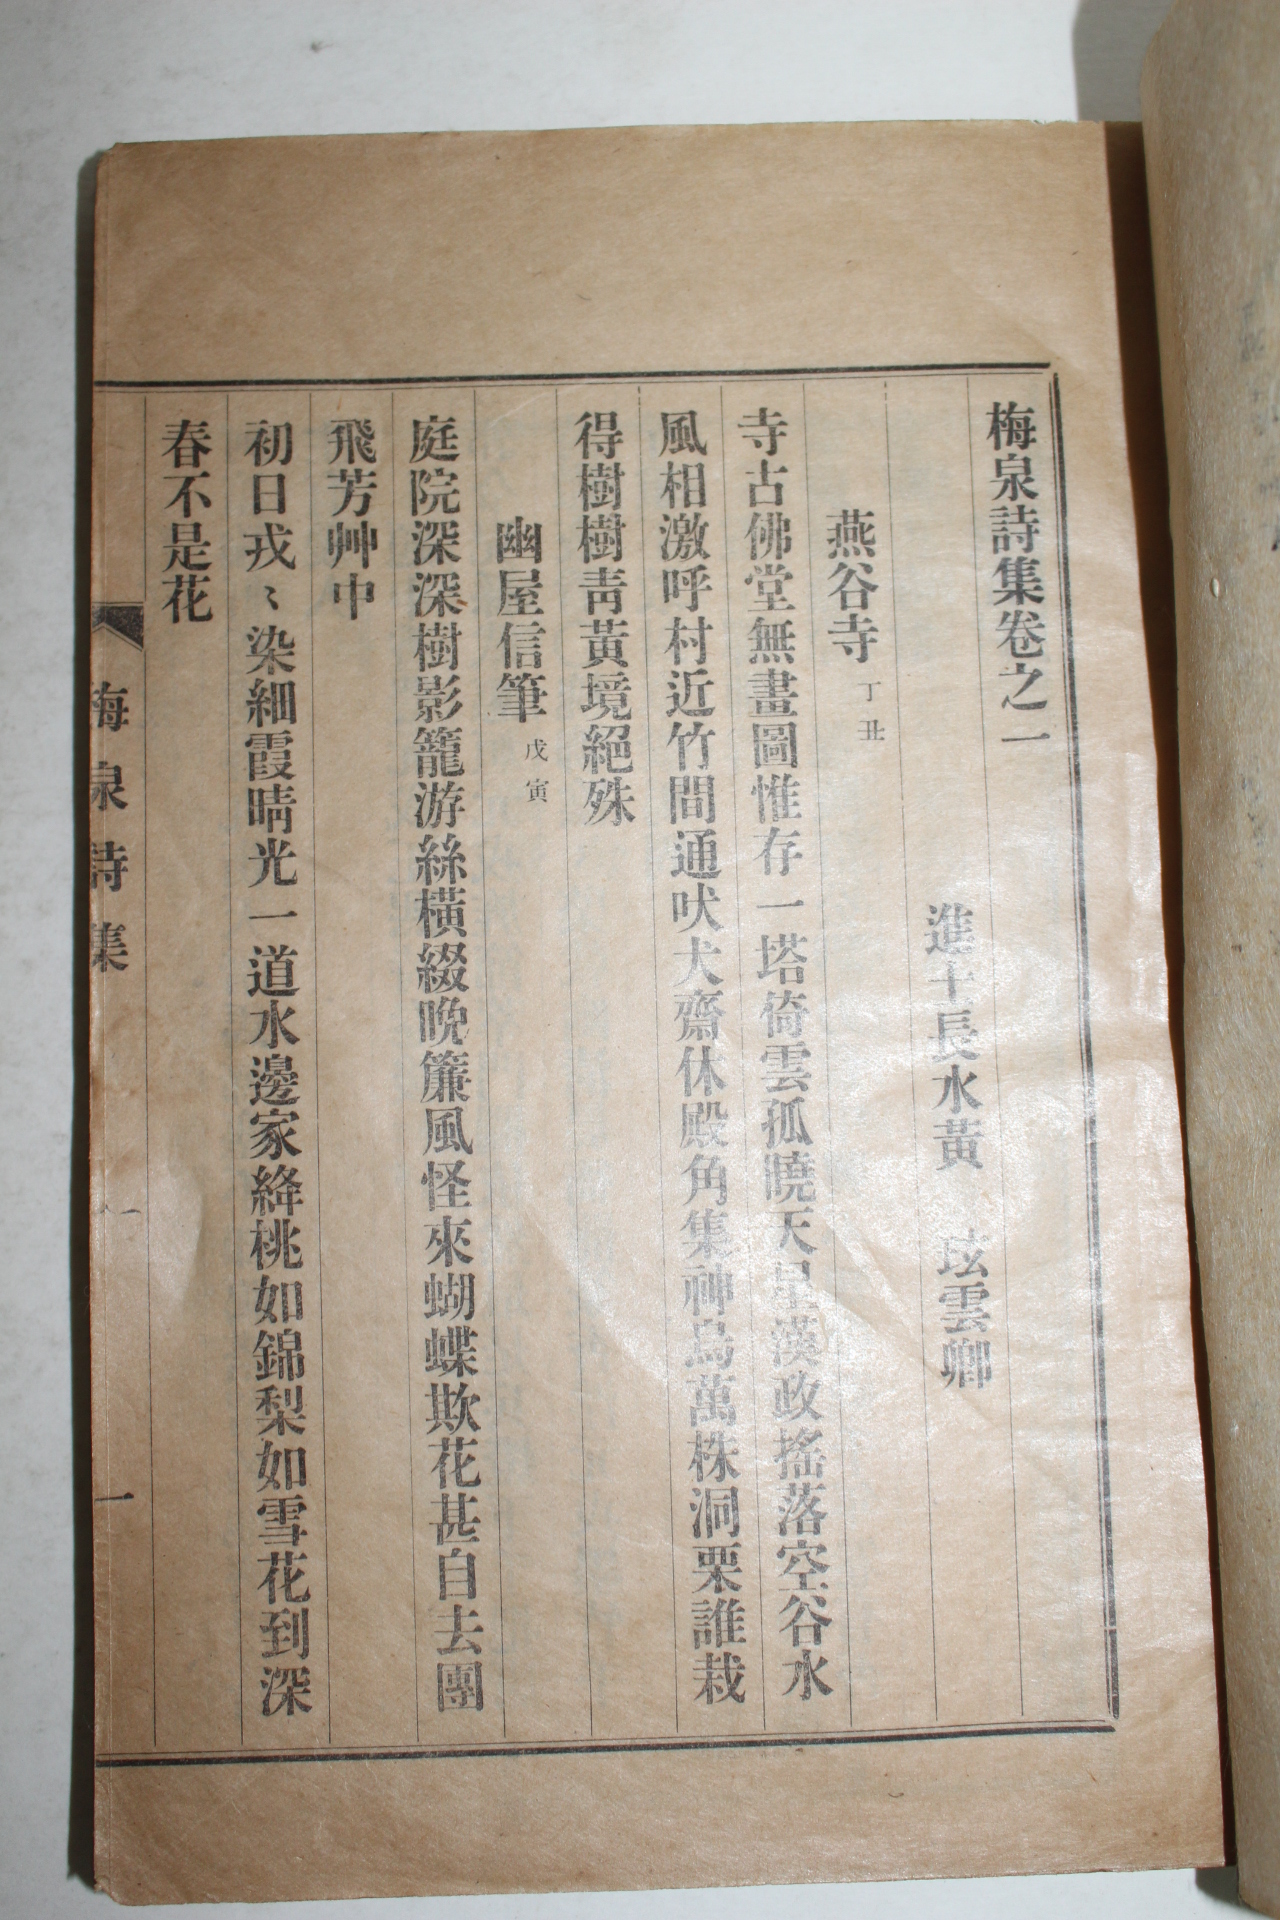 梅泉詩集卷之一
進士長水黃 玹雲卿
燕谷寺 丁丑
寺古佛堂無畫圖惟存一塔倚雲孤曉天星漢政搖落空谷水
風相激呼村近竹間通吠犬齋休殿角集神烏萬株洞栗誰栽
得樹樹靑黃境絕殊
幽屋信筆 戊寅
庭院深深樹影籠游絲橫綴晩簾風怪來蝴蝶欺花甚自去團
飛芳艸中
初日戎〻染細霞晴光一道水邊家絳桃如錦梨如雪花到深
春不是花
梅泉詩集 一 一